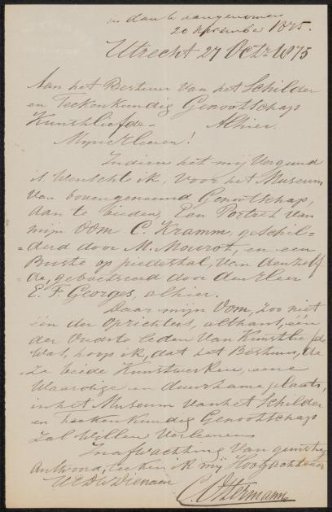 in dank aangenomen
20 November 1875.
Utrecht 27 Octr 1875
Aan het Bestuur van het Schilder
en Teekenkundig Genootschap
Kunstliefde. Alhier.
Mijne Heeren!
Indien het mij vergund
is wensch ik, voor het Museum
van bovengenoemd Genootschap,
aan te bieden, Een Portret van
mijn Oom C. Kramm, geschil-
derd door M. Mourot, en een
Buste op piedestal, van denzelf
de, geboetseerd door den Heer
E. F. Georges, alhier.
Daar mijn Oom, zoo niet
één der oprichters, althans één
der oudste leden van Kunstliefde
was, hoop ik, dat het Bestuur, de
ze beide Kunstwerken, eene
waardige en duurzame plaats,
in het Museum van het Schilder
en Teekenkundig Genootschap
zal willen verleenen.
In afwachting van gunstig
antwoord, teeken ik mij Hoogachtend
UEDW Dienaar